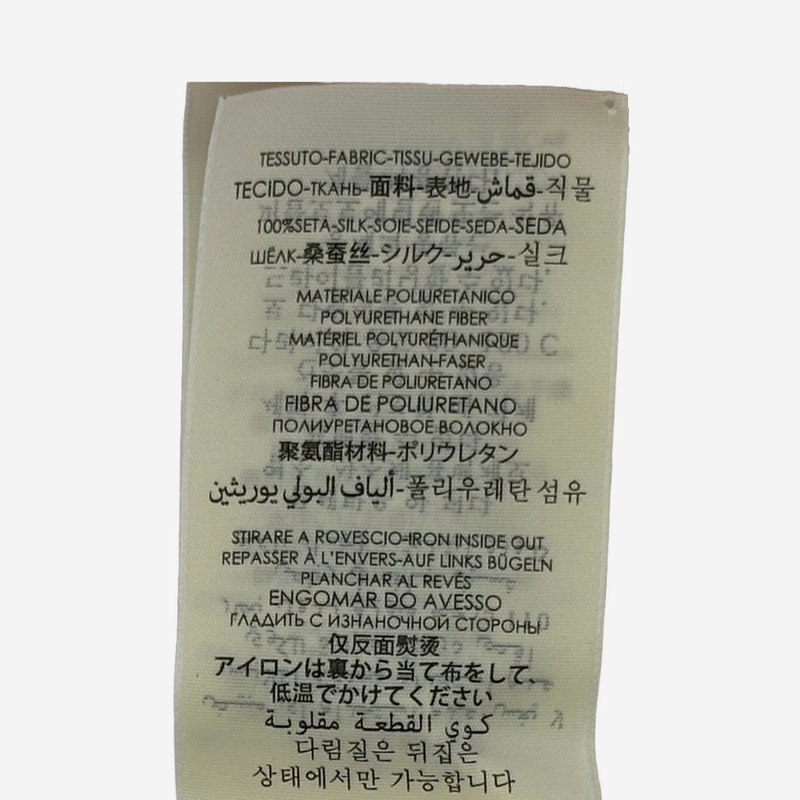 TESSUTO-FABRIC-TISSU-GEWEBE-TEJIDO
TECIDO-ТКАНЬ-面料-表地-قماش-직물
100%SETA-SILK-SOIE-SEIDE-SEDA-SEDA
ШЁЛК-桑蚕丝-シルク-حرير-실크
MATERIALE POLIURETANICO
POLYURETHANE FIBER
MATÉRIEL POLYURÉTHANIQUE
POLYURETHAN-FASER
FIBRA DE POLIURETANO
FIBRA DE POLIURETANO
ПОЛИУРЕТАНОВОЕ ВОЛОКНО
聚氨酯材料-ポリウレタン
ألياف البولي يوريثين-폴리우레탄 섬유
STIRARE A ROVESCIO-IRON INSIDE OUT
REPASSER À L'ENVERS-AUF LINKS BÜGELN
PLANCHAR AL REVÉS
ENGOMAR DO AVESSO
ГЛАДИТЬ С ИЗНАНОЧНОЙ СТОРОНЫ
仅反面熨烫
アイロンは裏から当て布をして、
低温でかけてください
كوي القطعة مقلوبة
다림질은 뒤집은
상태에서만 가능합니다